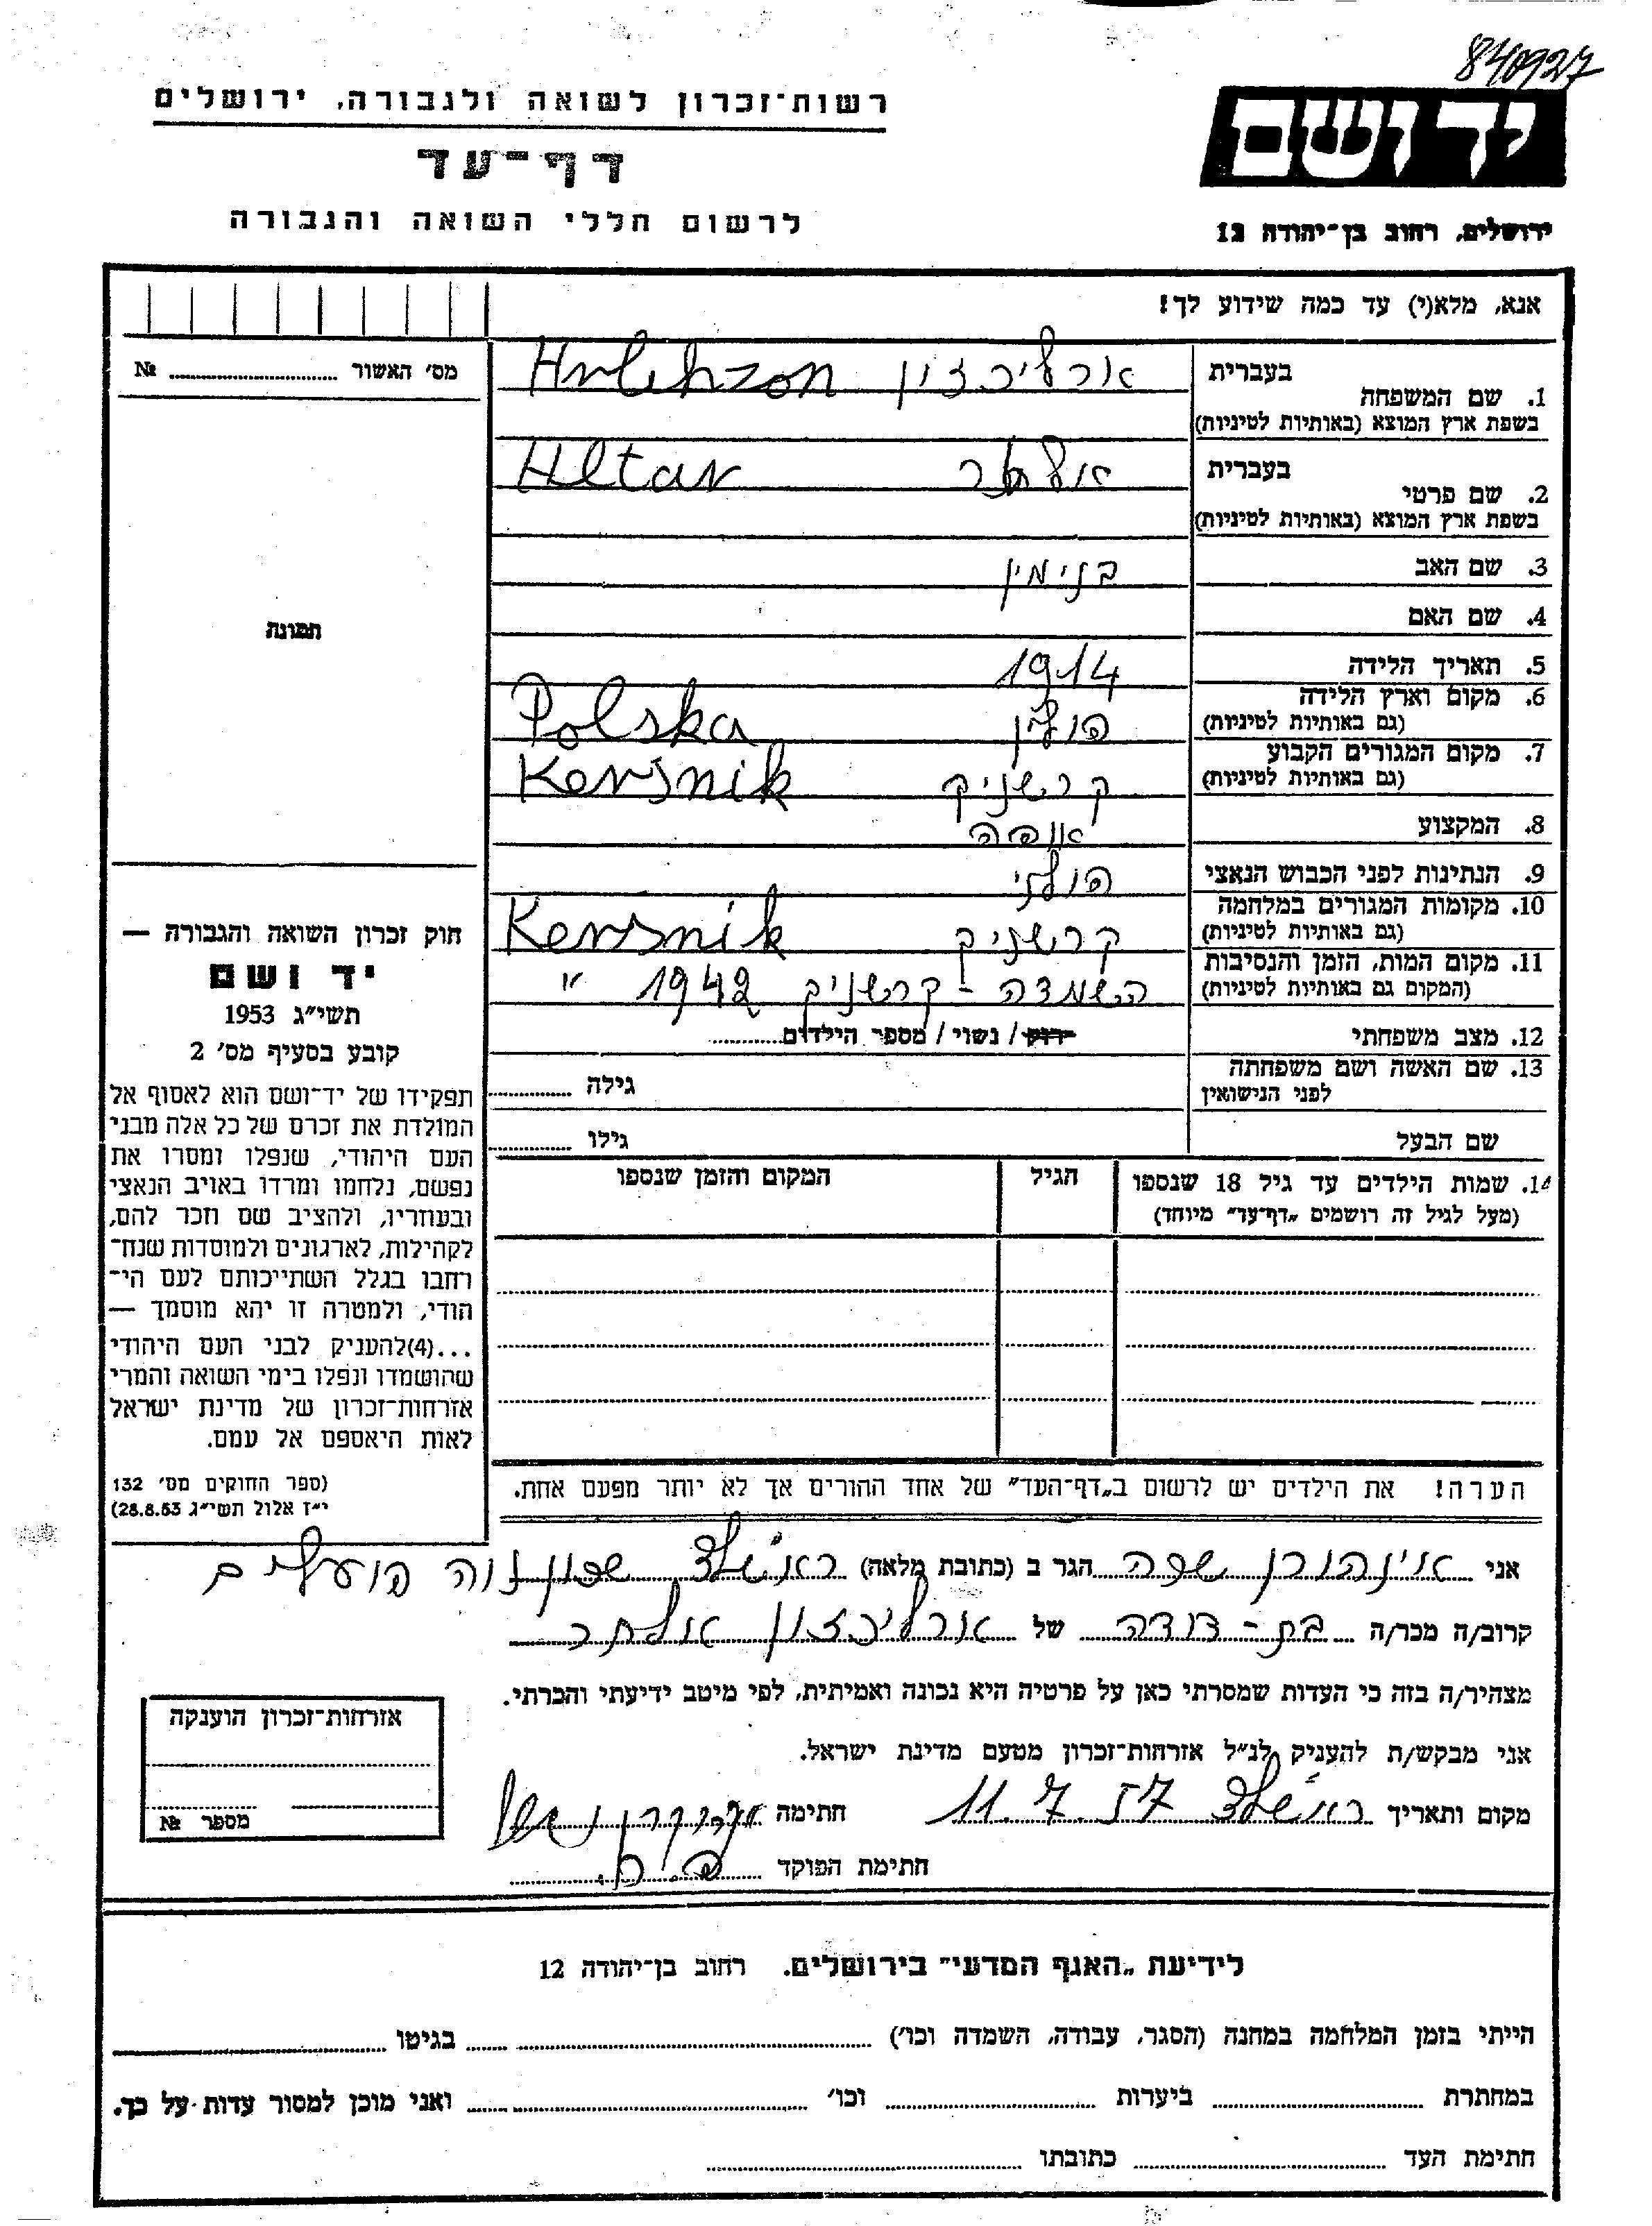 840927
רשות־זכרון לשואה ולגבורה, ירושלים
דף־עד
לרשום חללי השואה והגבורה
יד ושם
ירושלים, רחוב בן־יהודה 12
אנא, מלא(י) עד כמה שידוע לך!
מס' האשור № ............
תמונה
1. שם המשפחה בעברית אורליכזון Hrlehzon
בשפת ארץ המוצא (באותיות לטיניות)
2. שם פרטי בעברית אלתר Altar
בשפת ארץ המוצא (באותיות לטיניות)
3. שם האב בנימין
4. שם האם
5. תאריך הלידה 1914
6. מקום וארץ הלידה (גם באותיות לטיניות) פולין Polska
7. מקום המגורים הקבוע (גם באותיות לטיניות) קרשניק Kersnik
8. המקצוע אופה
9. הנתינות לפני הכבוש הנאצי פולני
10. מקומות המגורים במלחמה (גם באותיות לטיניות) קרשניק Kersnik
11. מקום המות, הזמן והנסיבות (המקום גם באותיות לטיניות) השמדה - קרשניק 1942 "
12. מצב משפחתי רווק / נשוי / מספר הילדים............
13. שם האשה ושם משפחתה לפני הנישואין גילה ............
שם הבעל גילו ............
14. שמות הילדים עד גיל 18 שנספו הגיל המקום והזמן שנספו
(מעל לגיל זה רושמים „דף־עד" מיוחד)
הערה! את הילדים יש לרשום ב„דף־העד" של אחד ההורים אך לא יותר מפעם אחת.
חוק זכרון השואה והגבורה —
יד ושם
תשי"ג 1953
קובע בסעיף מס' 2
תפקידו של יד־ושם הוא לאסוף אל
המולדת את זכרם של כל אלה מבני
העם היהודי, שנפלו ומסרו את
נפשם, נלחמו ומרדו באויב הנאצי
ובעוזריו, ולהציב שם וזכר להם,
לקהילות, לארגונים ולמוסדות שנח־
רחבו בגלל השתייכותם לעם הי־
הודי, ולמטרה זו יהא מוסמך —
...(4)להעניק לבני העם היהודי
שהושמדו ונפלו בימי השואה והמרי
אזרחות־זכרון של מדינת ישראל
לאות היאספם אל עמם.
(ספר החוקים מס' 132
י"ז אלול תשי"ג 28.8.53)
אני איינהורן שפה הגר ב (כתובת מלאה) ראשל"צ שכון נוה פועלים
קרוב/ה מכר/ה בת-דודה של אורליכזון אלתר
מצהיר/ה בזה כי העדות שמסרתי כאן על פרטיה היא נכונה ואמיתית, לפי מיטב ידיעתי והכרתי.
אני מבקש/ת להעניק לנ"ל אזרחות־זכרון מטעם מדינת ישראל.
מקום ותאריך ראשל"צ 11.7.57 חתימה
חתימת הפוקד
אזרחות־זכרון הוענקה
מספר №
לידיעת „האגף המדעי" בירושלים. רחוב בן־יהודה 12
הייתי בזמן המלחמה במחנה (הסגר, עבודה, השמדה וכו') ............ בגיטו ............
במחתרת ............ ביערות ............ וכו' ............ ואני מוכן למסור עדות על כך.
חתימת העד ............ כתובתו ............